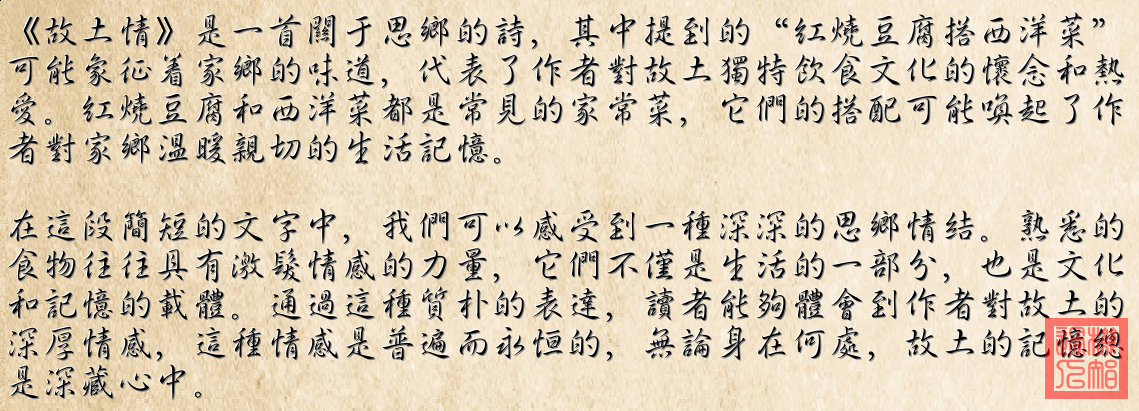 《故土情》是一首關于思鄉的詩，其中提到的“紅燒豆腐搭西洋菜”
可能象征着家鄉的味道，代表了作者對故土獨特飲食文化的懷念和熱
愛。紅燒豆腐和西洋菜都是常見的家常菜，它們的搭配可能喚起了作
者對家鄉溫暖親切的生活記憶。
在這段簡短的文字中，我們可以感受到一種深深的思鄉情結。熟悉的
食物往往具有激髮情感的力量，它們不僅是生活的一部分，也是文化
和記憶的載體。通過這種質朴的表達，讀者能夠體會到作者對故土的
深厚情感，這種情感是普遍而永恒的，無論身在何處，故土的記憶總
是深藏心中。